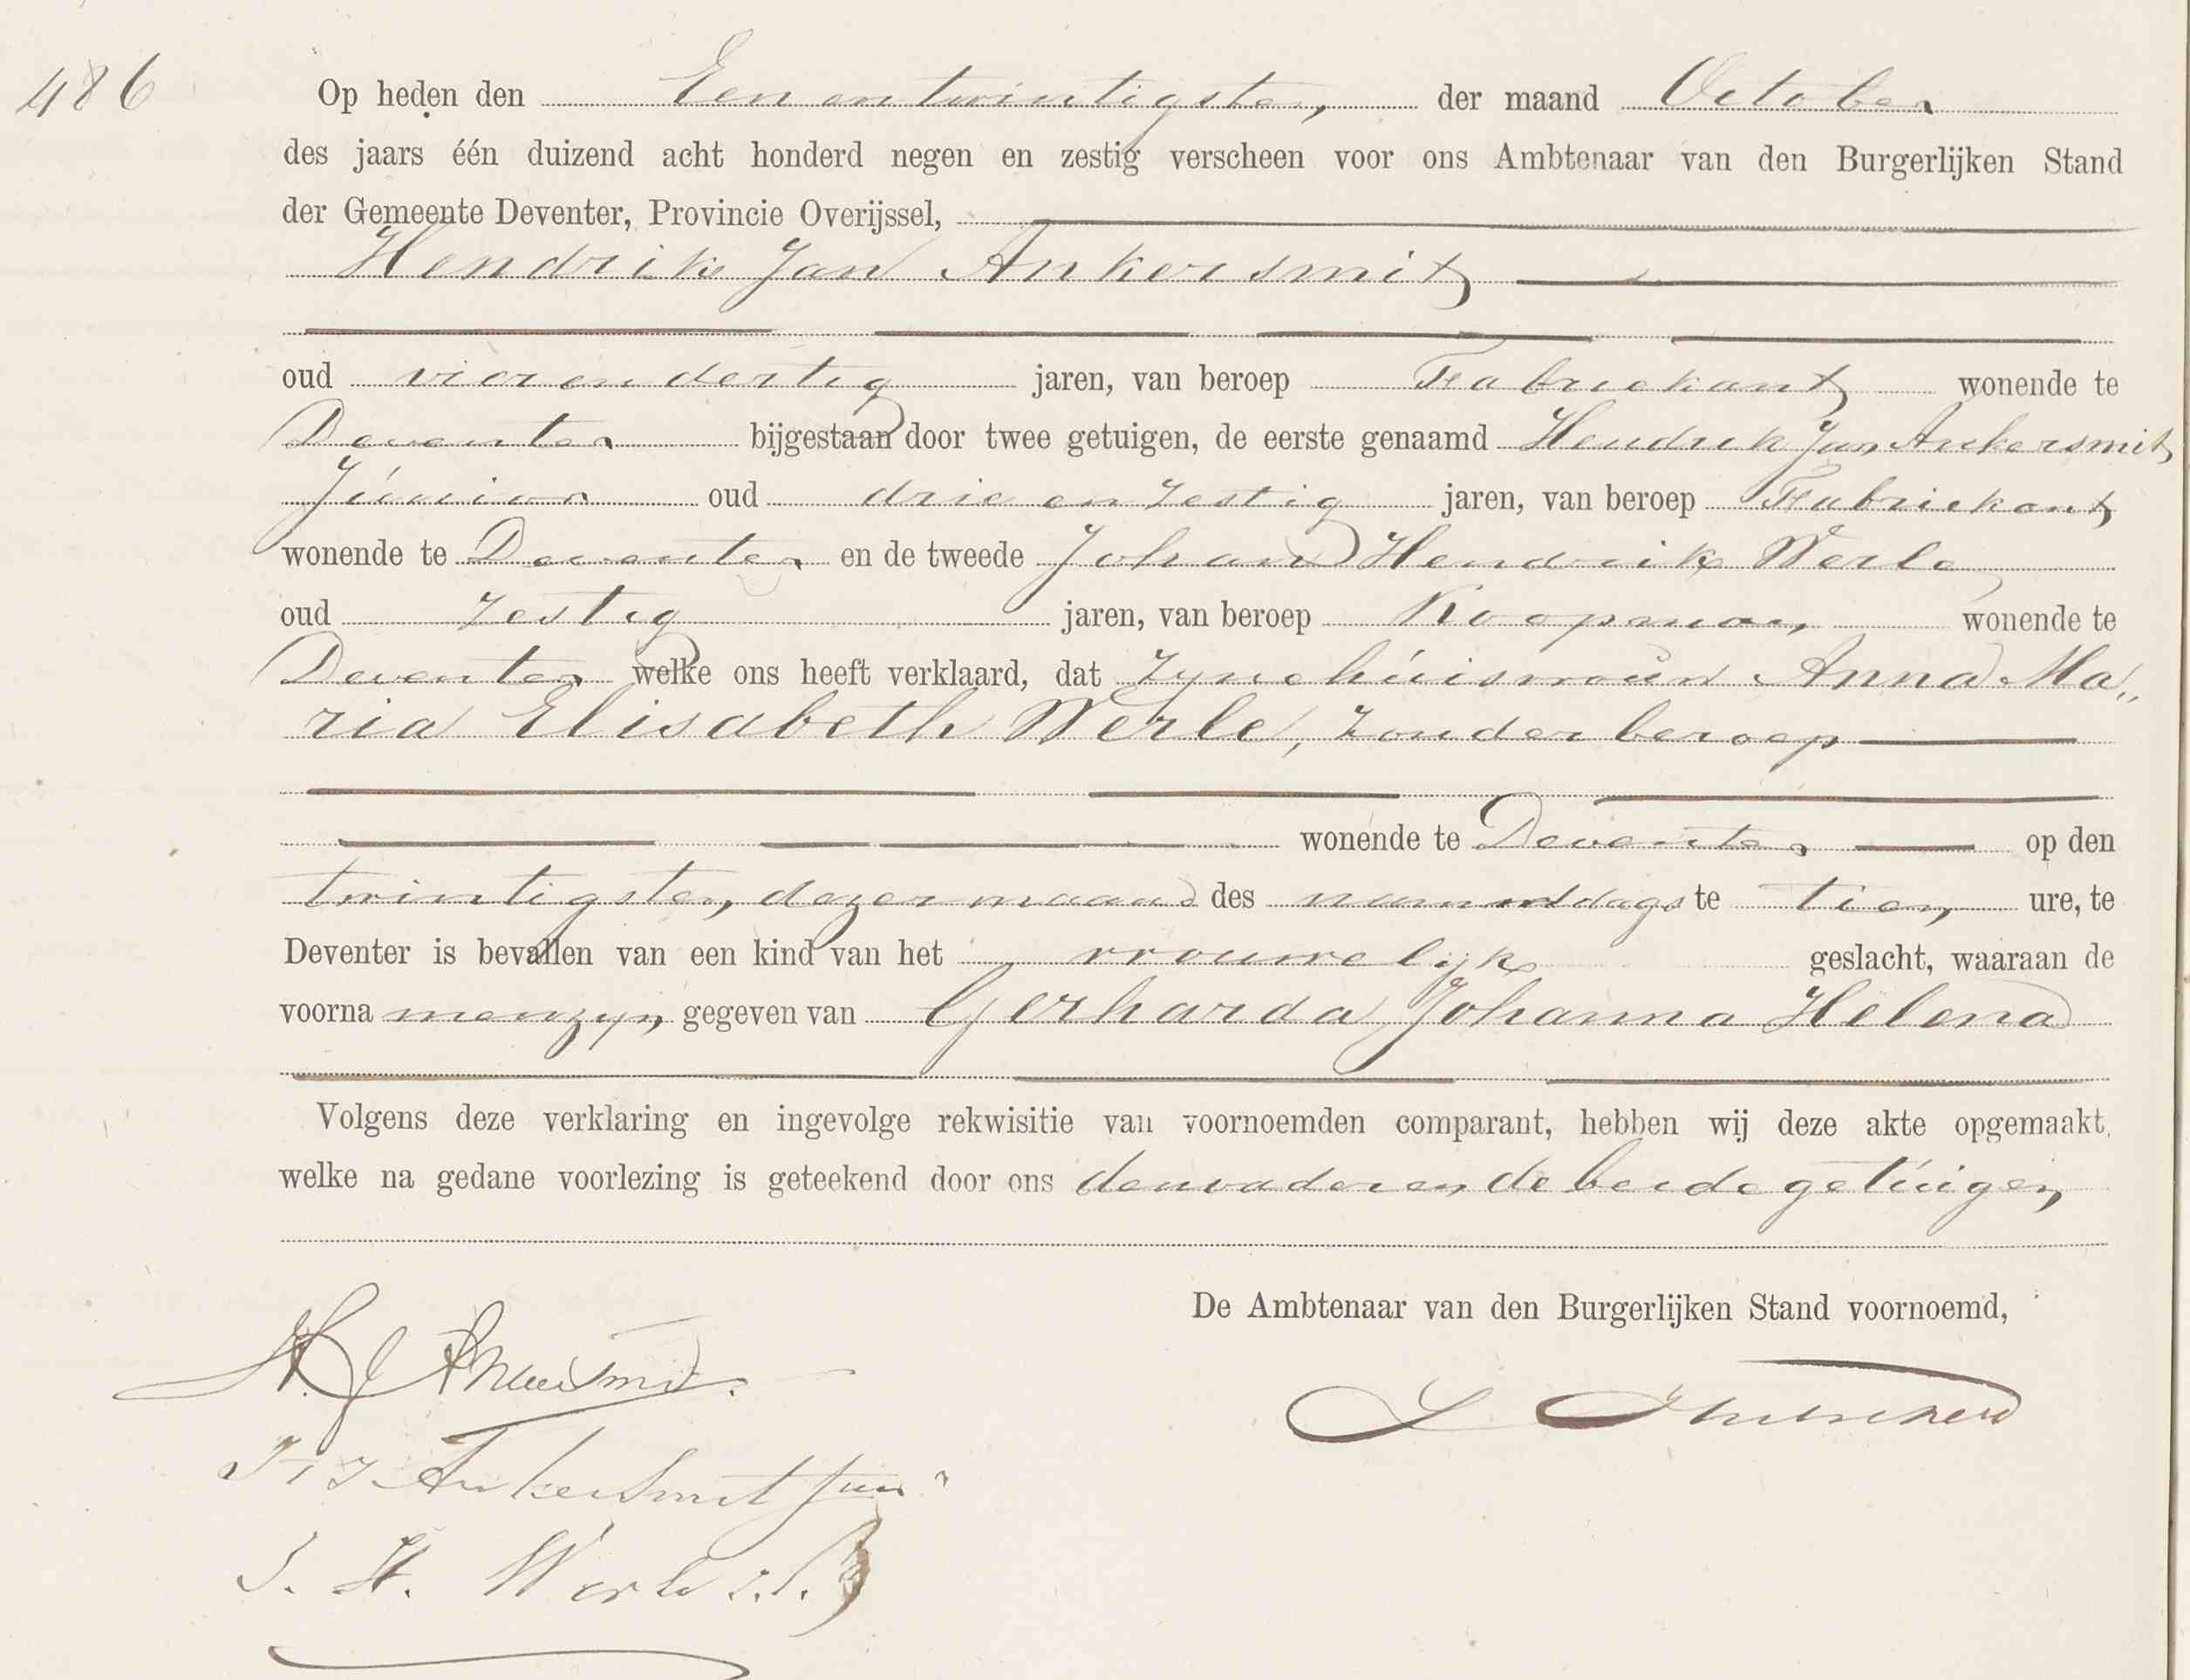 486
Op heden den Een en twintigsten, der maand October
des jaars één duizend acht honderd negen en zestig verscheen voor ons Ambtenaar van den Burgerlijken Stand
der Gemeente Deventer, Provincie Overijssel,
Hendrik Jan Ankersmit
oud vier en dertig jaren, van beroep Fabriekant wonende te
Deventer bijgestaan door twee getuigen, de eerste genaamd Hendrik Jan Ankersmit
Júnior oud drie en zestig jaren, van beroep Fabriekant
wonende te Deventer en de tweede Johan Hendrik Werle
oud zestig jaren, van beroep Koopman, wonende te
Deventer welke ons heeft verklaard, dat Zyne húisvroúw Anna Ma„
ria Elisabeth Werle, zonder beroep
wonende te Deventer op den
twintigsten, dezer maand des namiddags te tien ure, te
Deventer is bevallen van een kind van het vrouwelijk geslacht, waaraan de
voorna men zyn gegeven van Gerharda Johanna Helena
Volgens deze verklaring en ingevolge rekwisitie van voornoemden comparant, hebben wij deze akte opgemaakt,
welke na gedane voorlezing is geteekend door ons den vader en de beide getúigen
De Ambtenaar van den Burgerlijken Stand voornoemd,
H. J. Ankersmit.
H J Ankersmit Junr
J. H. Werle